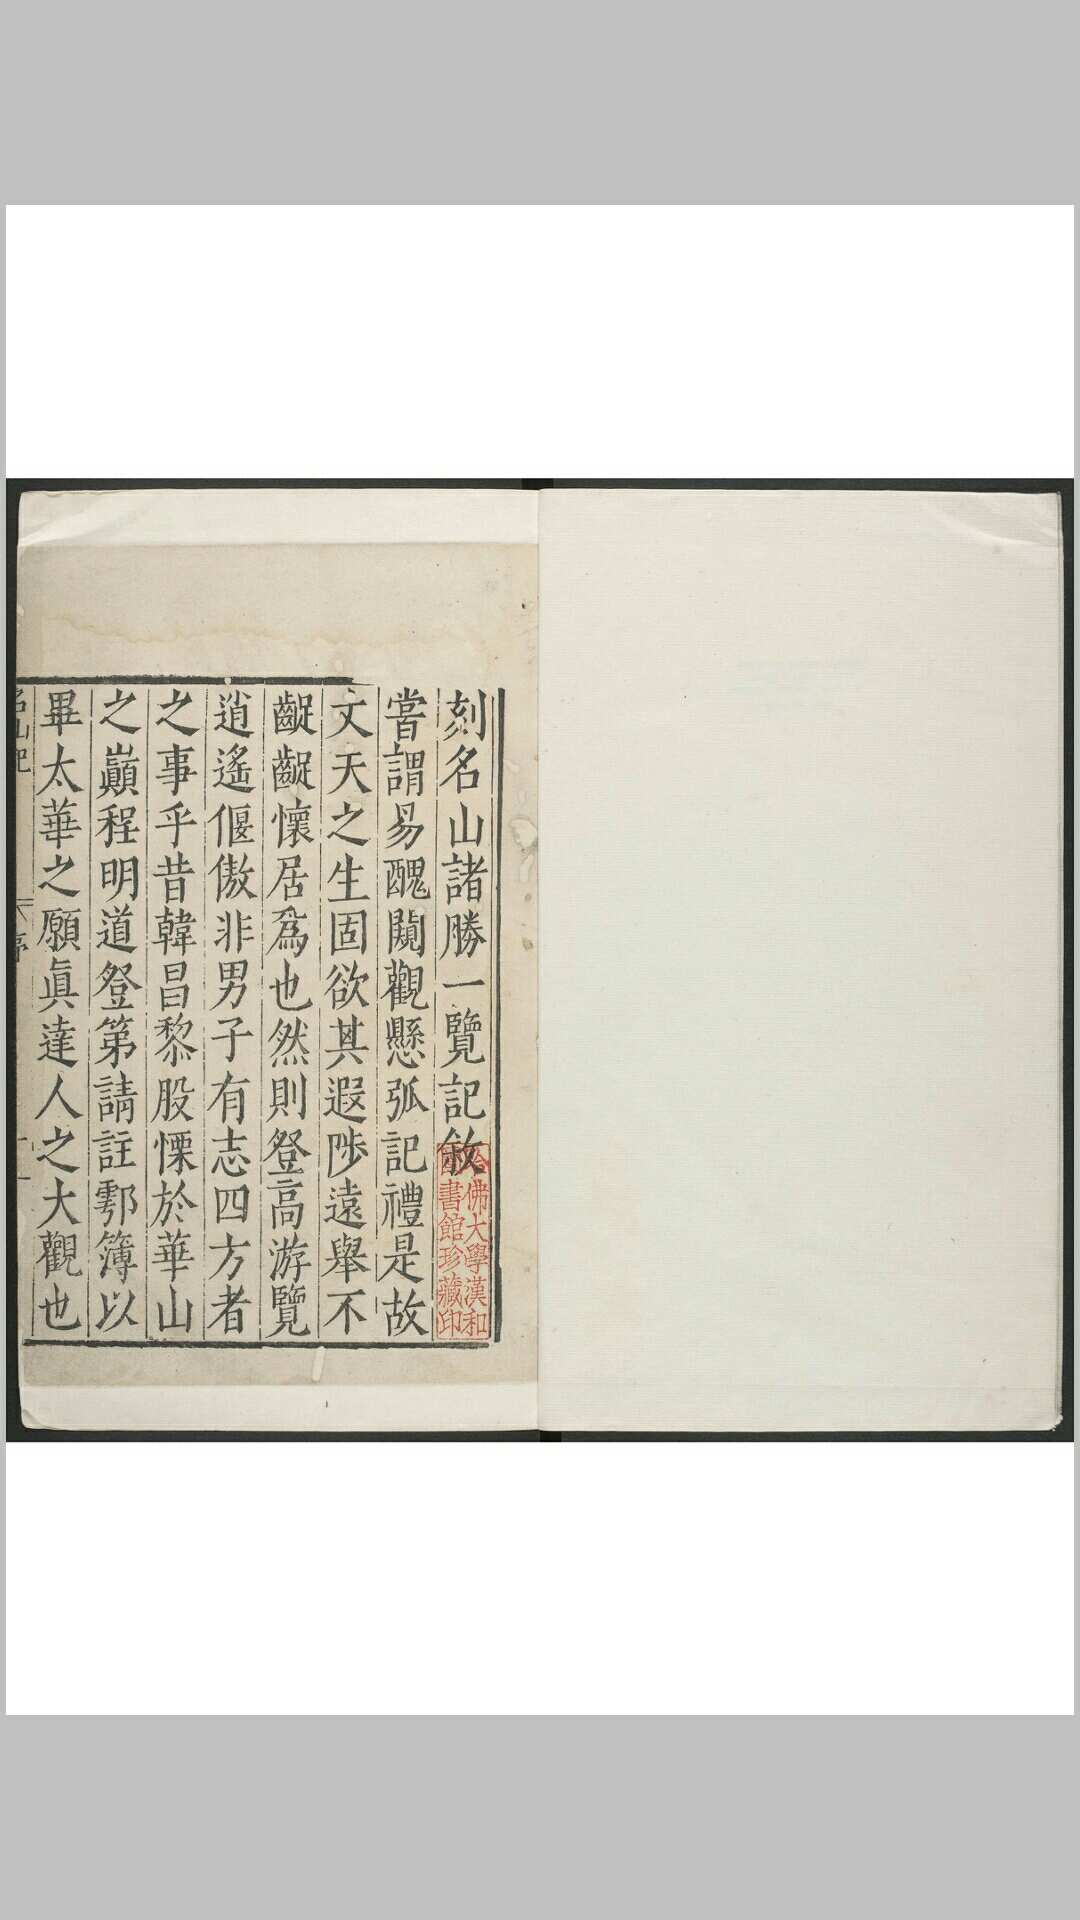 刻名山諸勝一覽記敘
嘗謂易醜闚觀懸弧記禮是故
文天之生固欲其遐陟遠舉不
齪齪懷居爲也然則登高游覽
逍遙偃傲非男子有志四方者
之事乎昔韓昌黎股慄於華山
之巔程明道登第請註鄠簿以
畢太華之願眞達人之大觀也
名山記
序
哈佛大學漢和
圖書館珍藏印